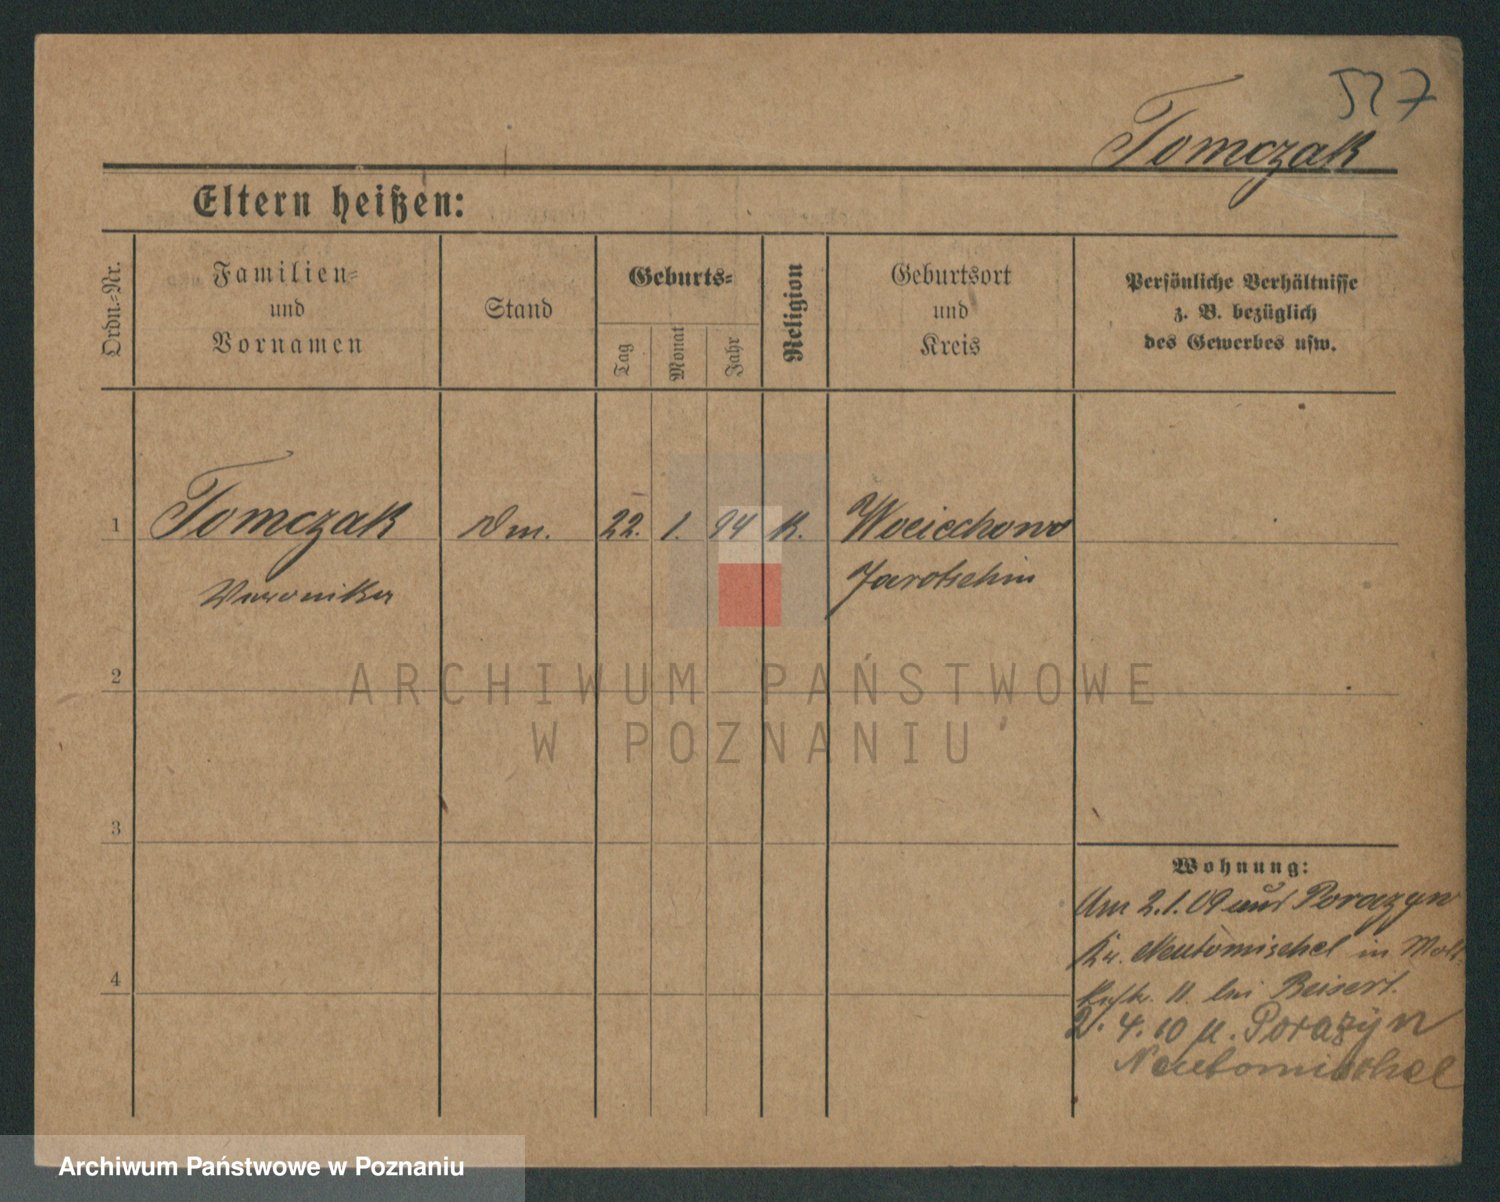 527
Tomczak
Eltern heißen:
Ordn.-Nr.
Familien-
und
Vornamen
Stand
Geburts-
Tag
Monat
Jahr
Religion
Geburtsort
und
Kreis
Persönliche Verhältnisse
z. B. bezüglich
des Gewerbes usw.
1 Tomczak 22. 1. 94 K. Woiciechowo
Veronika Jarotschin
2
3
4
Wohnung:
Am 2.1.09 Porazyn
Kr. Neutomischel in
11 bei Beisert.
2. 4. 10 Porazyn
Neutomischel
ARCHIWUM PAŃSTWOWE
W POZNANIU
Archiwum Państwowe w Poznaniu